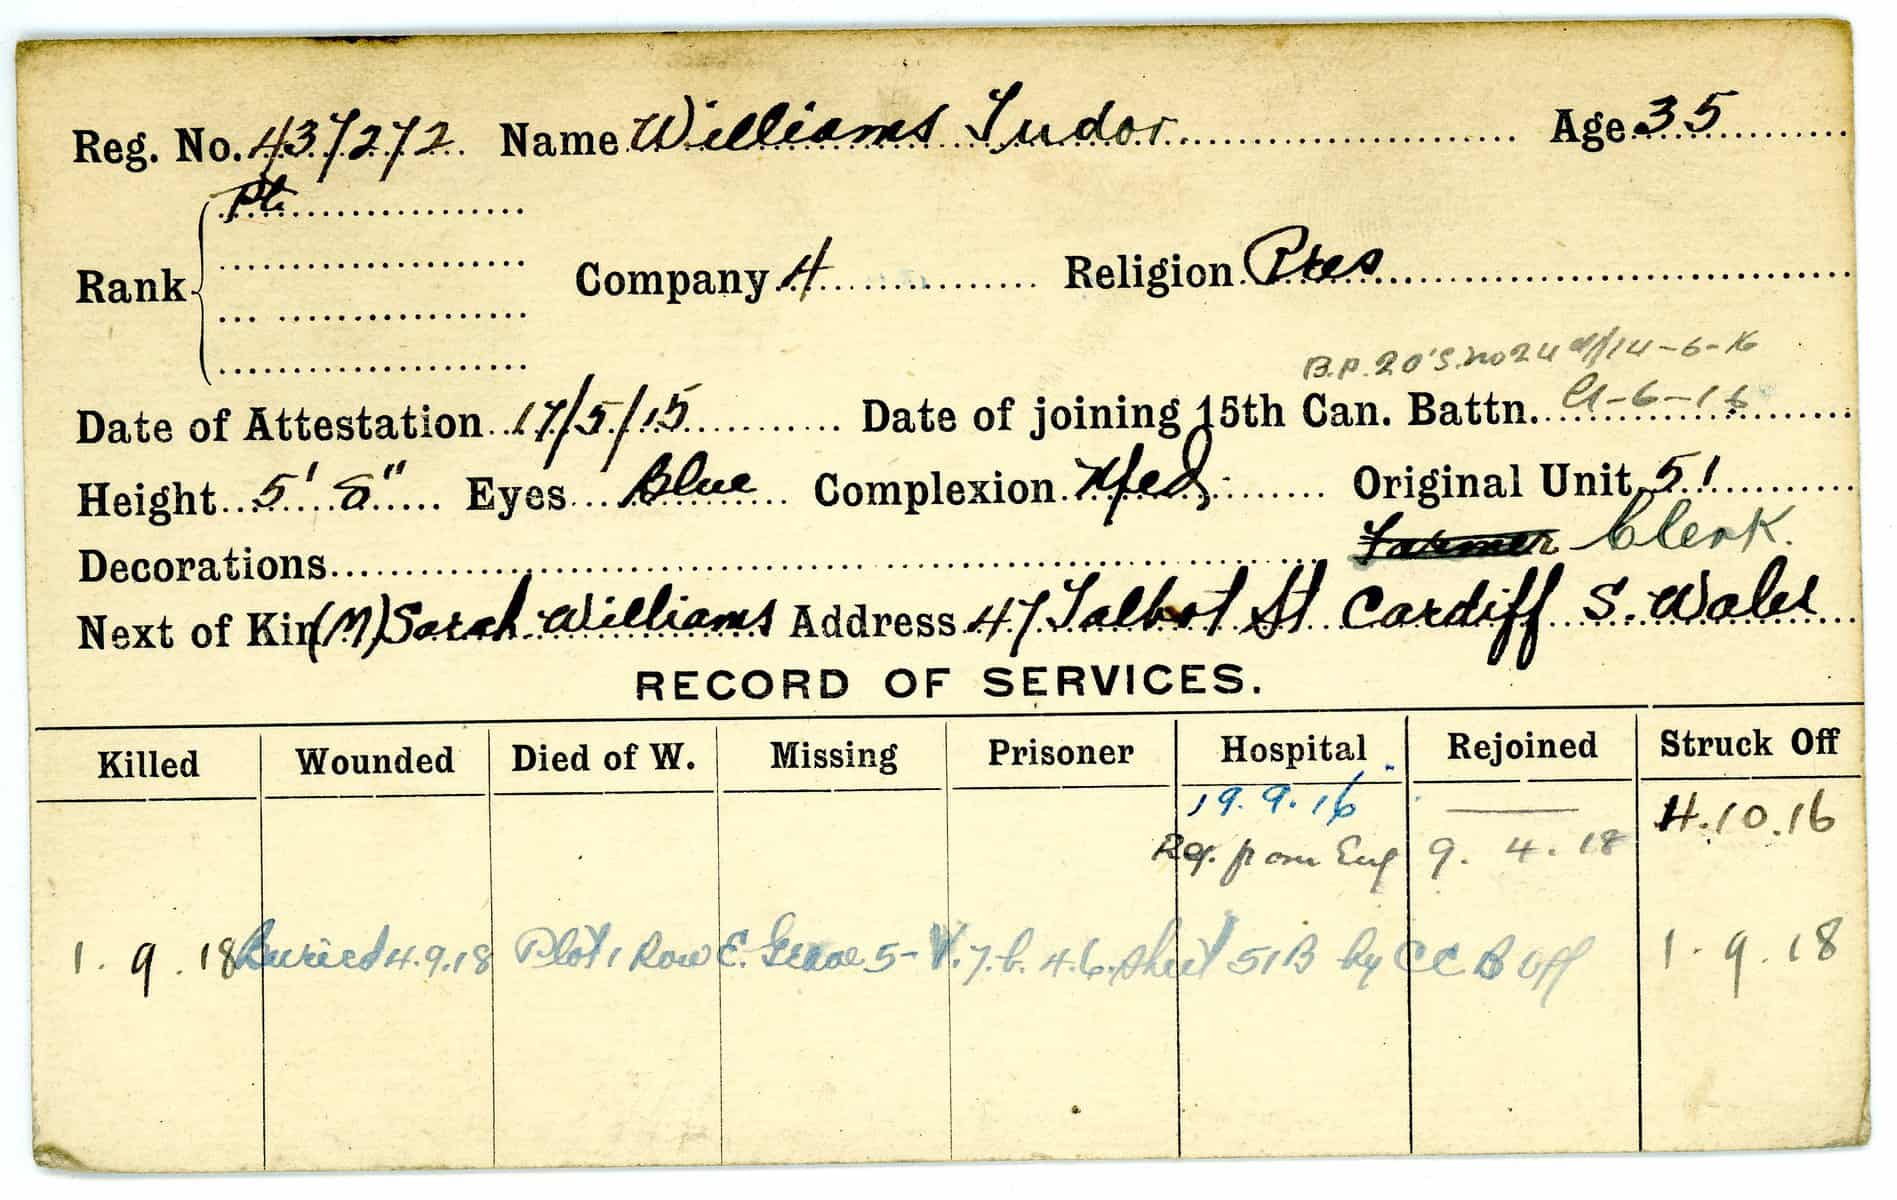 Reg. No. 437272 Name Williams Tudor Age 35
Pte
Rank Company 4 Religion Pres
B.P. 20's. no 24 14-6-16
Date of Attestation 17/5/15 Date of joining 15th Can. Battn. -6-16
Height 5' 8" Eyes Blue Complexion Med. Original Unit 51
Decorations Farmer Clerk.
Next of Kin (M) Sarah Williams Address 47 Talbot St Cardiff S. Wales
RECORD OF SERVICES.
Killed Wounded Died of W. Missing Prisoner Hospital Rejoined Struck Off
19.9.16 — 4.10.16
from Eng 9.4.18
1.9.18 Buried 4.9.18 Plot 1 Row E. Grave 5- sheet 51B by Off 1.9.18